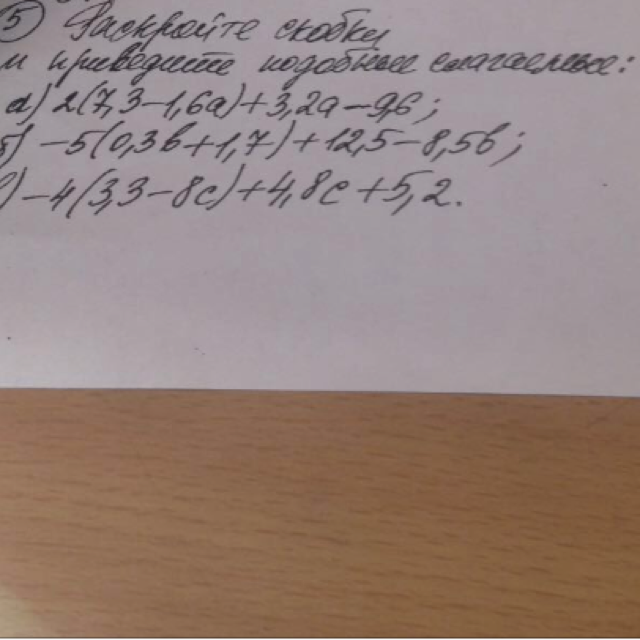 5 Раскройте скобки
и приведите подобные слагаемые:
а) 2(7,3-1,6a)+3,2a-9,6;
б) -5(0,3b+1,7)+12,5-8,5b;
) -4(3,3-8c)+4,8c+5,2.